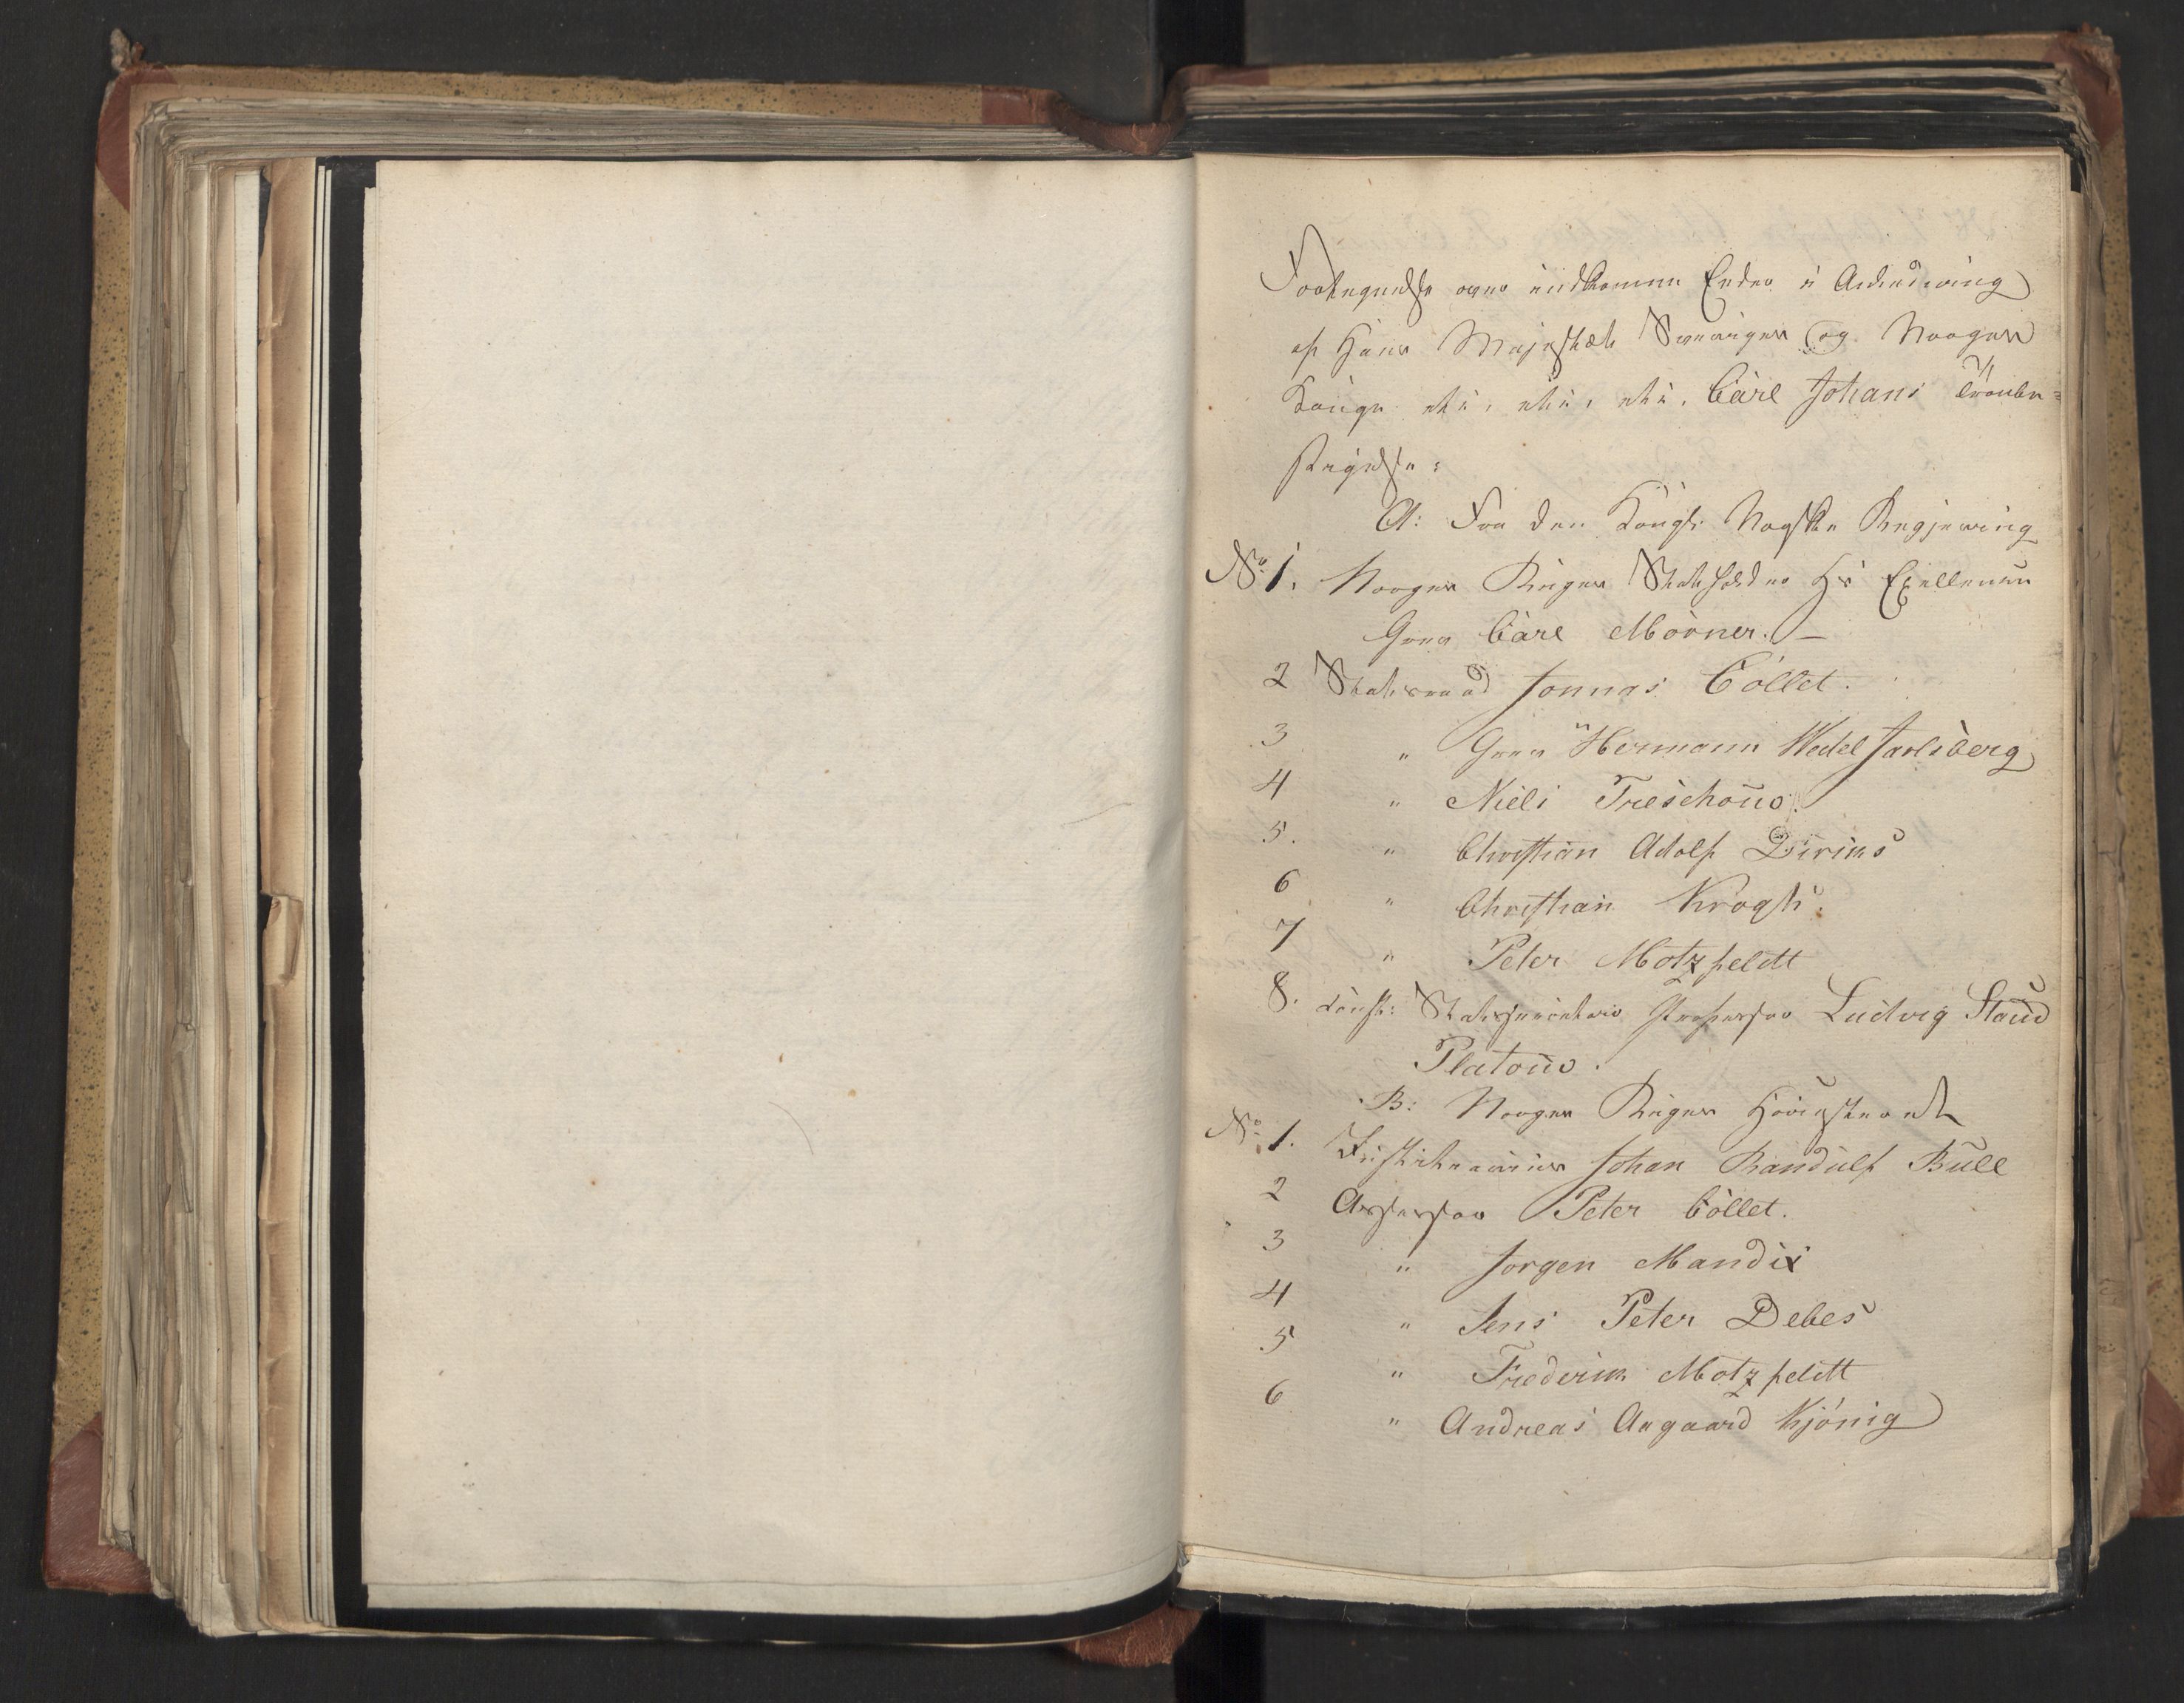 Fortegnelse over indkomne Eeder i Anledning
af Hans Majestæt Sverriges og Norges
Konge etc, etc, etc. Carl Johans Tronbe=
stigelse:
A: Fra den Kongl: Norske Regjering
No 1. Norges Riges Statholder Hs Exellence
Grev Carl Mörner. —
2 Statsraad Jonnas Collet.
3 " Grev Hermann Wedel Jarlsberg
4 " Niels Treschouw.
5. " Christian Adolf Diriks
6 " Christian Krogh.
7 " Peter Motzfeldt
8. Const: Statssecretair Professor Ludvig Stoud
Platouw.
B: Norges Riges Höiesteret
No 1. Justitiarius Johan Randulf Bull
2 Assessor Peter Collet.
3 " Jorgen Mandix
4 " Jens Peter Debes
5 " Frederik Motzfeldt
6 " Andreas Aagaard Kjönig